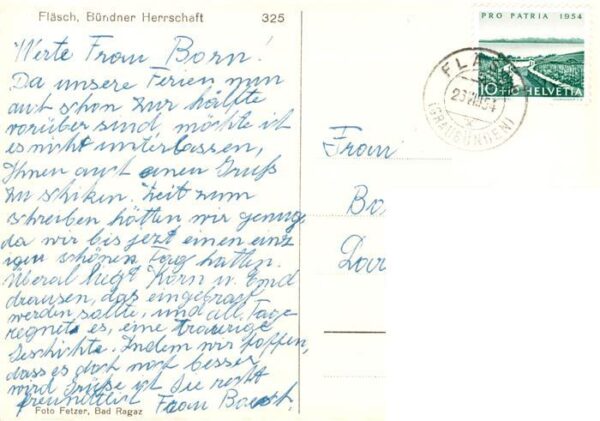 Fläsch, Bündner Herrschaft 325
Werte Frau Born!
Da unsere Ferien nun
auch schon zur hälfte
vorüber sind, möchte ich
es nicht unterlassen,
Ihnen auch einen Gruß
zu schiken. Zeit zum
schreiben hätten wir genug
da wir bis jezt einen einz
igen schönen Tag hatten.
Überal liegt Korn u. Emd
draussen, das eingebracht
werden sollte, und all. Tage
regnet es, eine traurige
Geschichte. Indem wir hoffen,
dass es doch noch besser
wird Grüße ich Sie recht
freundlich Frau
Foto Fetzer, Bad Ragaz
PRO PATRIA 1954
10 HELVETIA
FLÄSCH
23.VIII.54
(GRAUBÜNDEN)
Frau
Bo